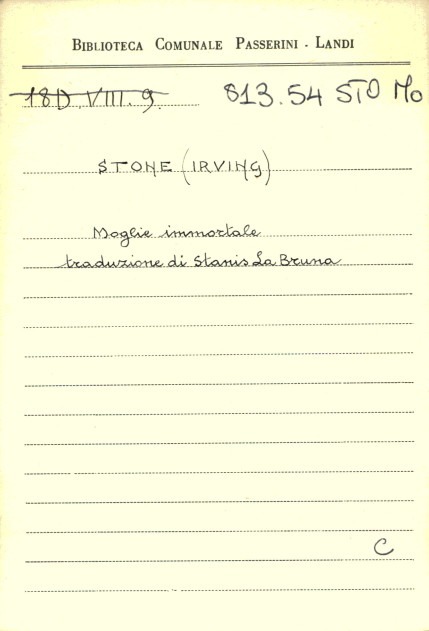 BIBLIOTECA COMUNALE PASSERINI - LANDI
18D.VIII.9. 813.54 STO Mo
STONE (IRVING)
Moglie immortale
traduzione di Stanis La Bruna
C